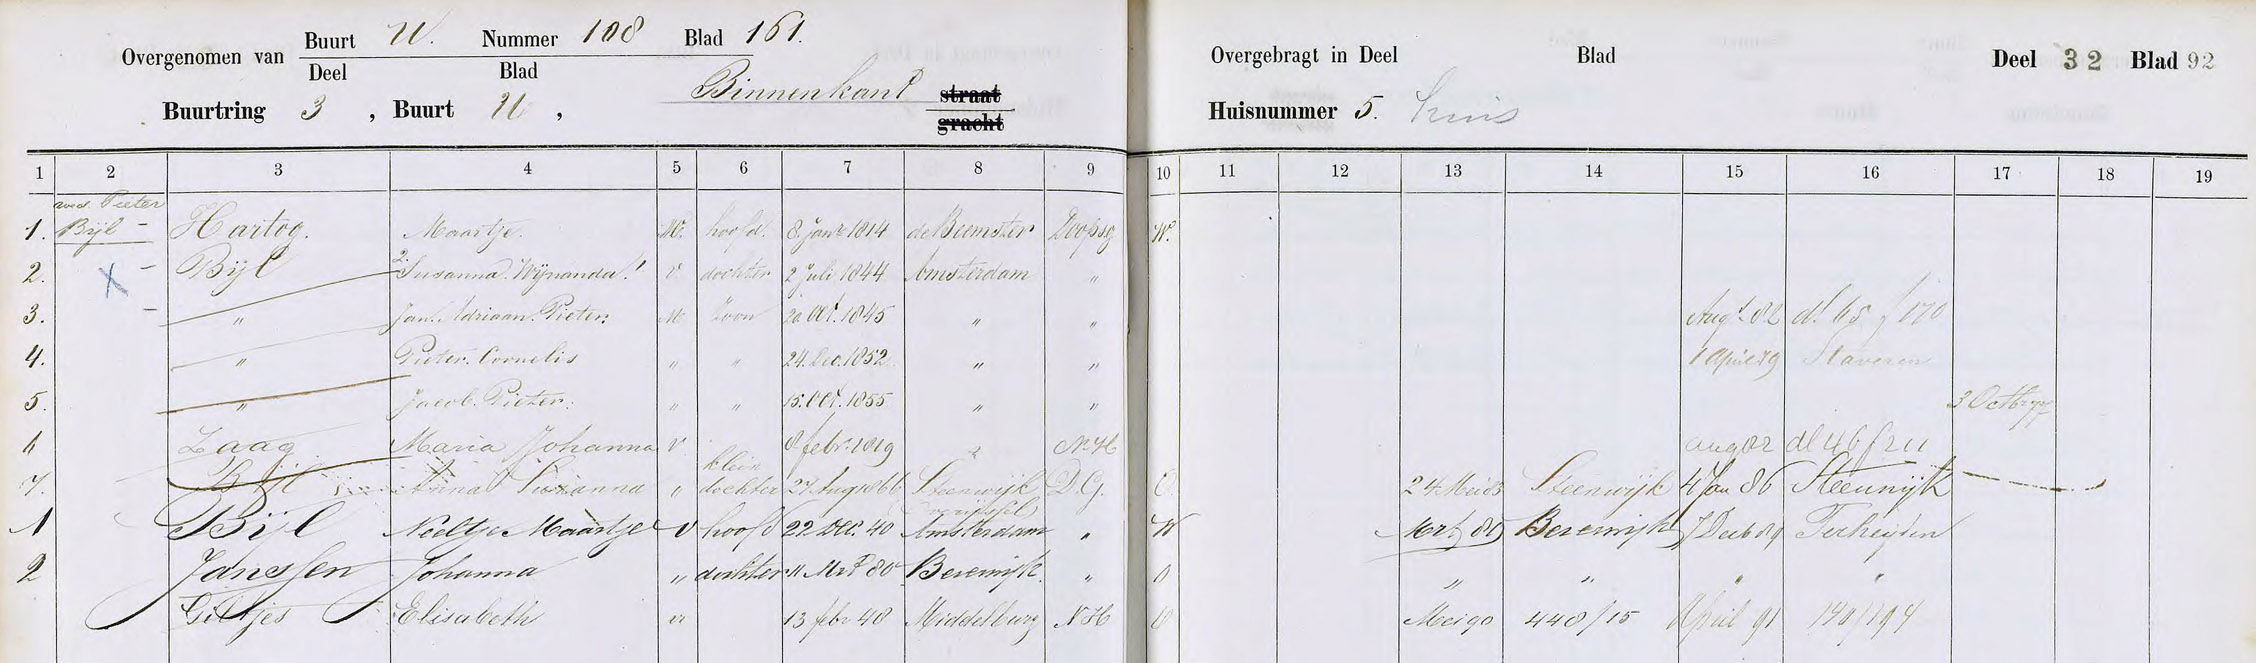 Overgenomen van Buurt U. Nummer 108 Blad 161.
Deel Blad
Buurtring 3, Buurt U, Binnenkant straat gracht
Overgebragt in Deel Blad Deel 32 Blad 92
Huisnummer 5. huis
1 2 3 4 5 6 7 8 9 10 11 12 13 14 15 16 17 18 19
wed. Pieter
1. Bijl - Hartog. Maartje. hoofd. 8 Jan 1814 de Beemster Doopsg W.
2. X - Bijl 2 Susanna Wijnanda 1 V. dochter 2 Juli 1844 Amsterdam "
3. - " Jan Adriaan Pieter. M zoon 20 Oct. 1845 " " Aug 82 dl 65 f 170
4. " Pieter Cornelis " " 24. Dec. 1852. " " 1 April 79 Staveren
5. " Jacob Pieter. " " 15. Oct. 1855 " " 3 Octbr
Zaag Maria Johanna V 8 febr. 1819 " N.H aug 82 dl 46 f 211
7. Bijl Anna Susanna " klein dochter 27 Aug 1866 Steenwijk D.G. O 24 Mei 83 Steenwijk 4 Jan 86 Steenwijk
1 Bijl Neeltje Maartje V hoofd 22 Dec. 40 Amsterdam " W Mrt 81 Beverwijk 7 Decb 89 Terheijden
2 Janssen Johanna " dochter 11 Mrt 80 Beverwijk. " O " " " "
Giltjes Elisabeth v 13 febr 48 Middelburg N H O Mei 90 448/15 April 91 140/194